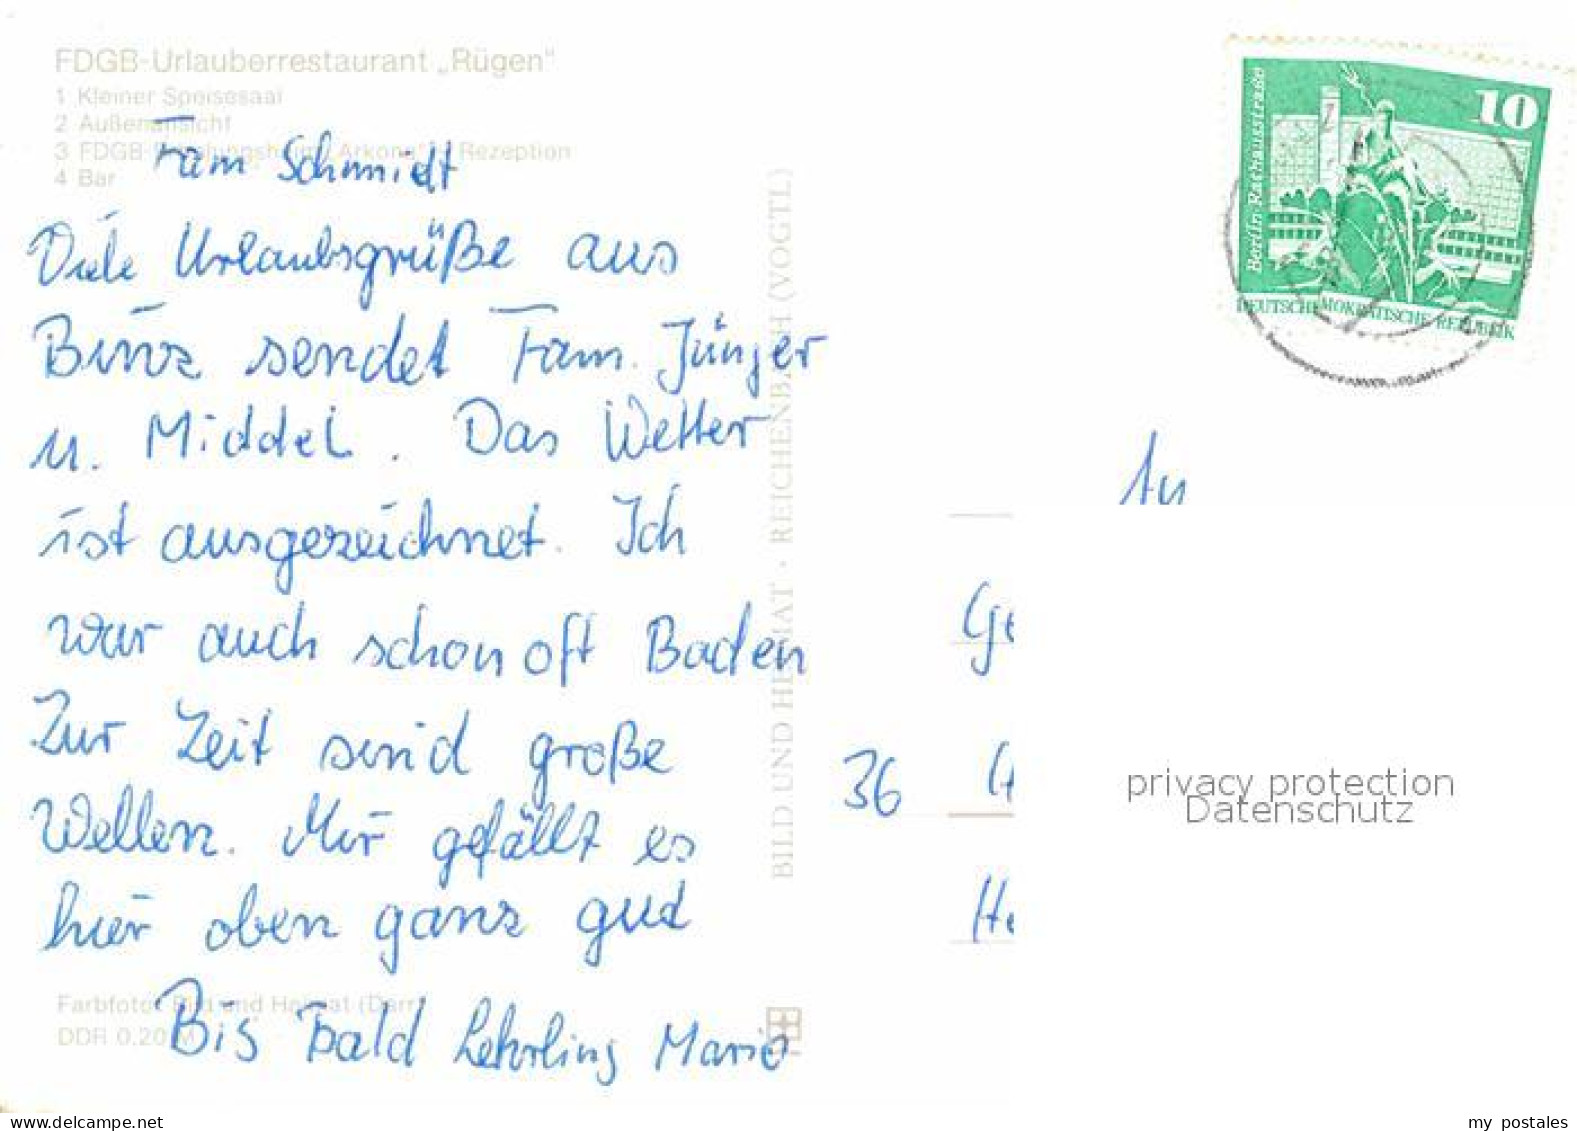 FDGB-Urlauberrestaurant „Rügen"
1 Kleiner Speisesaal
2 Außenansicht
3 FDGB-Erholungsheim „Arkona" - Rezeption
4 Bar
Fam Schmidt
Viele Urlaubsgrüße aus
Binz sendet Fam. Jünger
u. Middel. Das Wetter
ist ausgezeichnet. Ich
war auch schon oft Baden
Zur Zeit sind große
Wellen. Mir gefällt es
hier oben ganz gud
Bis Bald Lehrling Mario
Farbfoto: Bild und Heimat (Darr)
DDR 0.20 M
BILD UND HEIMAT · REICHENBACH (VOGTL)
10
Berlin-Rathausstraße
DEUTSCHE DEMOKRATISCHE REPUBLIK
An
Ge
36
He
privacy protection
Datenschutz
www.delcampe.net
my_postales